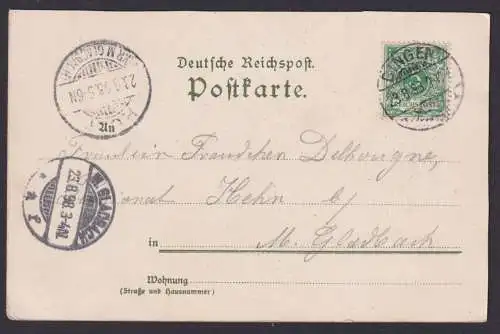 Deutsche Reichspost.
Postkarte.
An
Fräulein Fränzchen Delhougne,
Hehn b/
in M. Gladbach
Wohnung
(Straße und Hausnummer)
M. GLADBACH
23.8.98.3-4N.